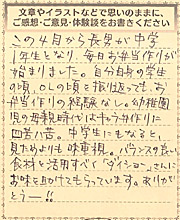 文章やイラストなどで思いのままに、
ご感想・ご意見・体験談をお書きください
この4月から長男が中学
1年生となり、毎日お弁当作りが
始まりました。自分自身の学生
の頃、OLの頃を振り返っても、お
弁当作りの経験なし。幼稚園
児の母親時代はキャラ弁作りに
四苦八苦。中学生にもなると、
見ためよりも味重視。バランスの良い
食材を活用すべく「ダイショー」さんに
お味を助けてもらっています。ありが
とうー!!